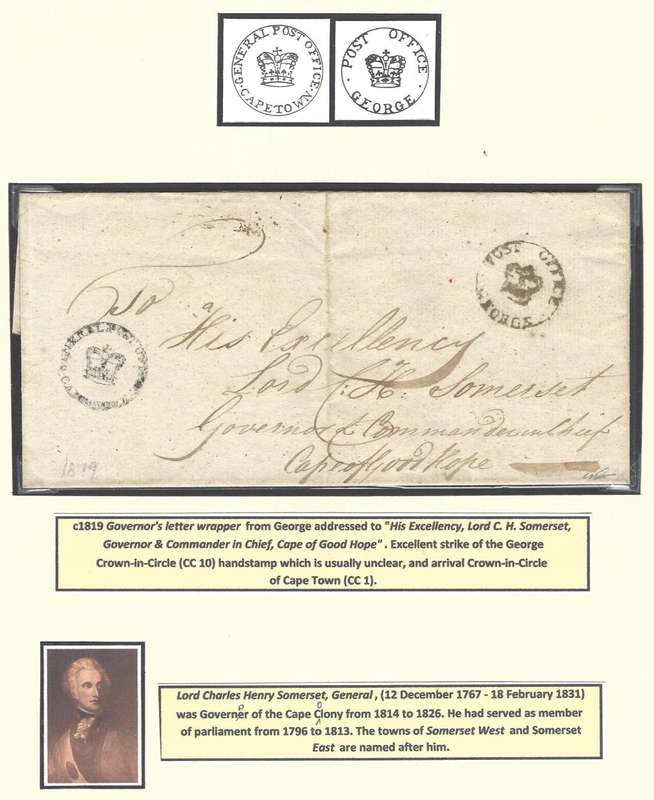 GENERAL POST OFFICE
CAPETOWN
POST OFFICE
GEORGE
POST OFFICE
EORGE
To
a
His Excellency
GENERAL POST OFFICE
Lord C. Hy. Somerset
Governor & Commander in Chief
Cape of Good Hope
1819
c1819 Governor's letter wrapper from George addressed to "His Excellency, Lord C. H. Somerset,
Governor & Commander in Chief, Cape of Good Hope". Excellent strike of the George
Crown-in-Circle (CC 10) handstamp which is usually unclear, and arrival Crown-in-Circle
of Cape Town (CC 1).
Lord Charles Henry Somerset, General, (12 December 1767 - 18 February 1831)
was Governer of the Cape Clony from 1814 to 1826. He had served as member
of parliament from 1796 to 1813. The towns of Somerset West and Somerset
East are named after him.